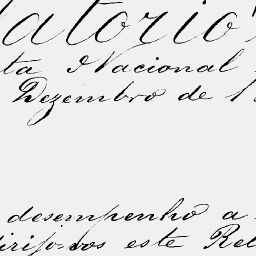 latorio
ta Nacional
Dezembro de 1
desempenho a
dirijo-vos este Rel